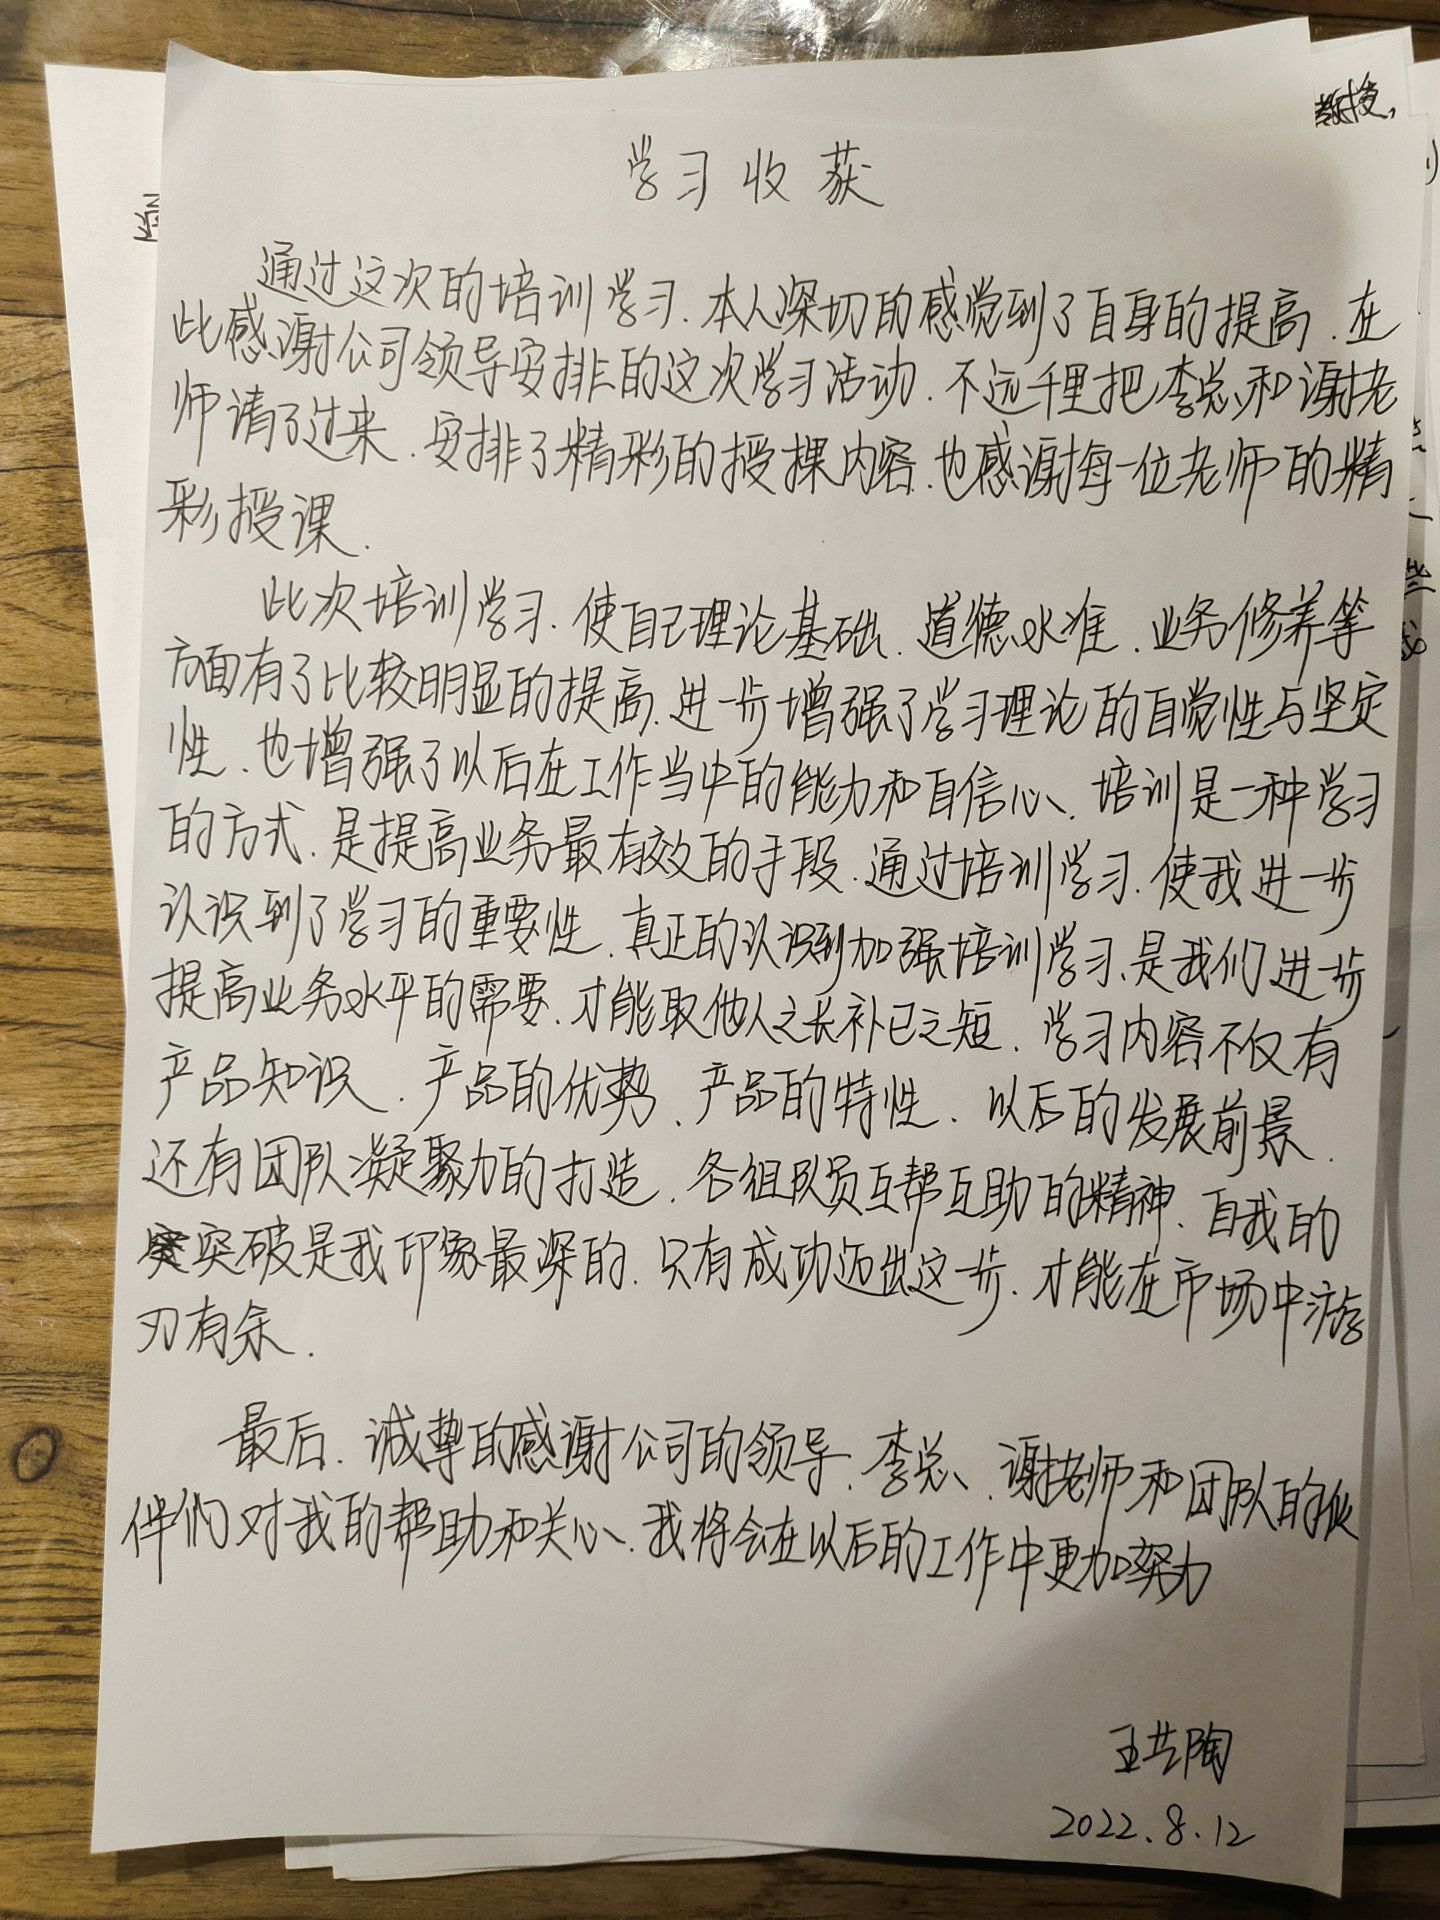 学习收获
通过这次的培训学习.本人深切的感觉到了自身的提高.在
此感谢公司领导安排的这次学习活动.不远千里把李总和谢老
师请了过来.安排了精彩的授课内容.也感谢每一位老师的精
彩授课.
此次培训学习.使自己理论基础、道德水准、业务修养等
方面有了比较明显的提高.进一步增强了学习理论的自觉性与坚定
性、也增强了以后在工作当中的能力和自信心、培训是一种学习
的方式.是提高业务最有效的手段.通过培训学习.使我进一步
认识到了学习的重要性.真正的认识到加强培训学习、是我们进一步
提高业务水平的需要.才能取他人之长补已之短.学习内容不仅有
产品知识、产品的优势、产品的特性、以后的发展前景.
还有团队凝聚力的打造、各组队员互帮互助的精神、自我的
突破是我印象最深的.只有成功迈出这一步.才能在市场中游
刃有余.
最后.诚挚的感谢公司的领导、李总、谢老师和团队的伙
伴们对我的帮助和关心、我将会在以后的工作中更加努力
王共陶
2022.8.12
教授,